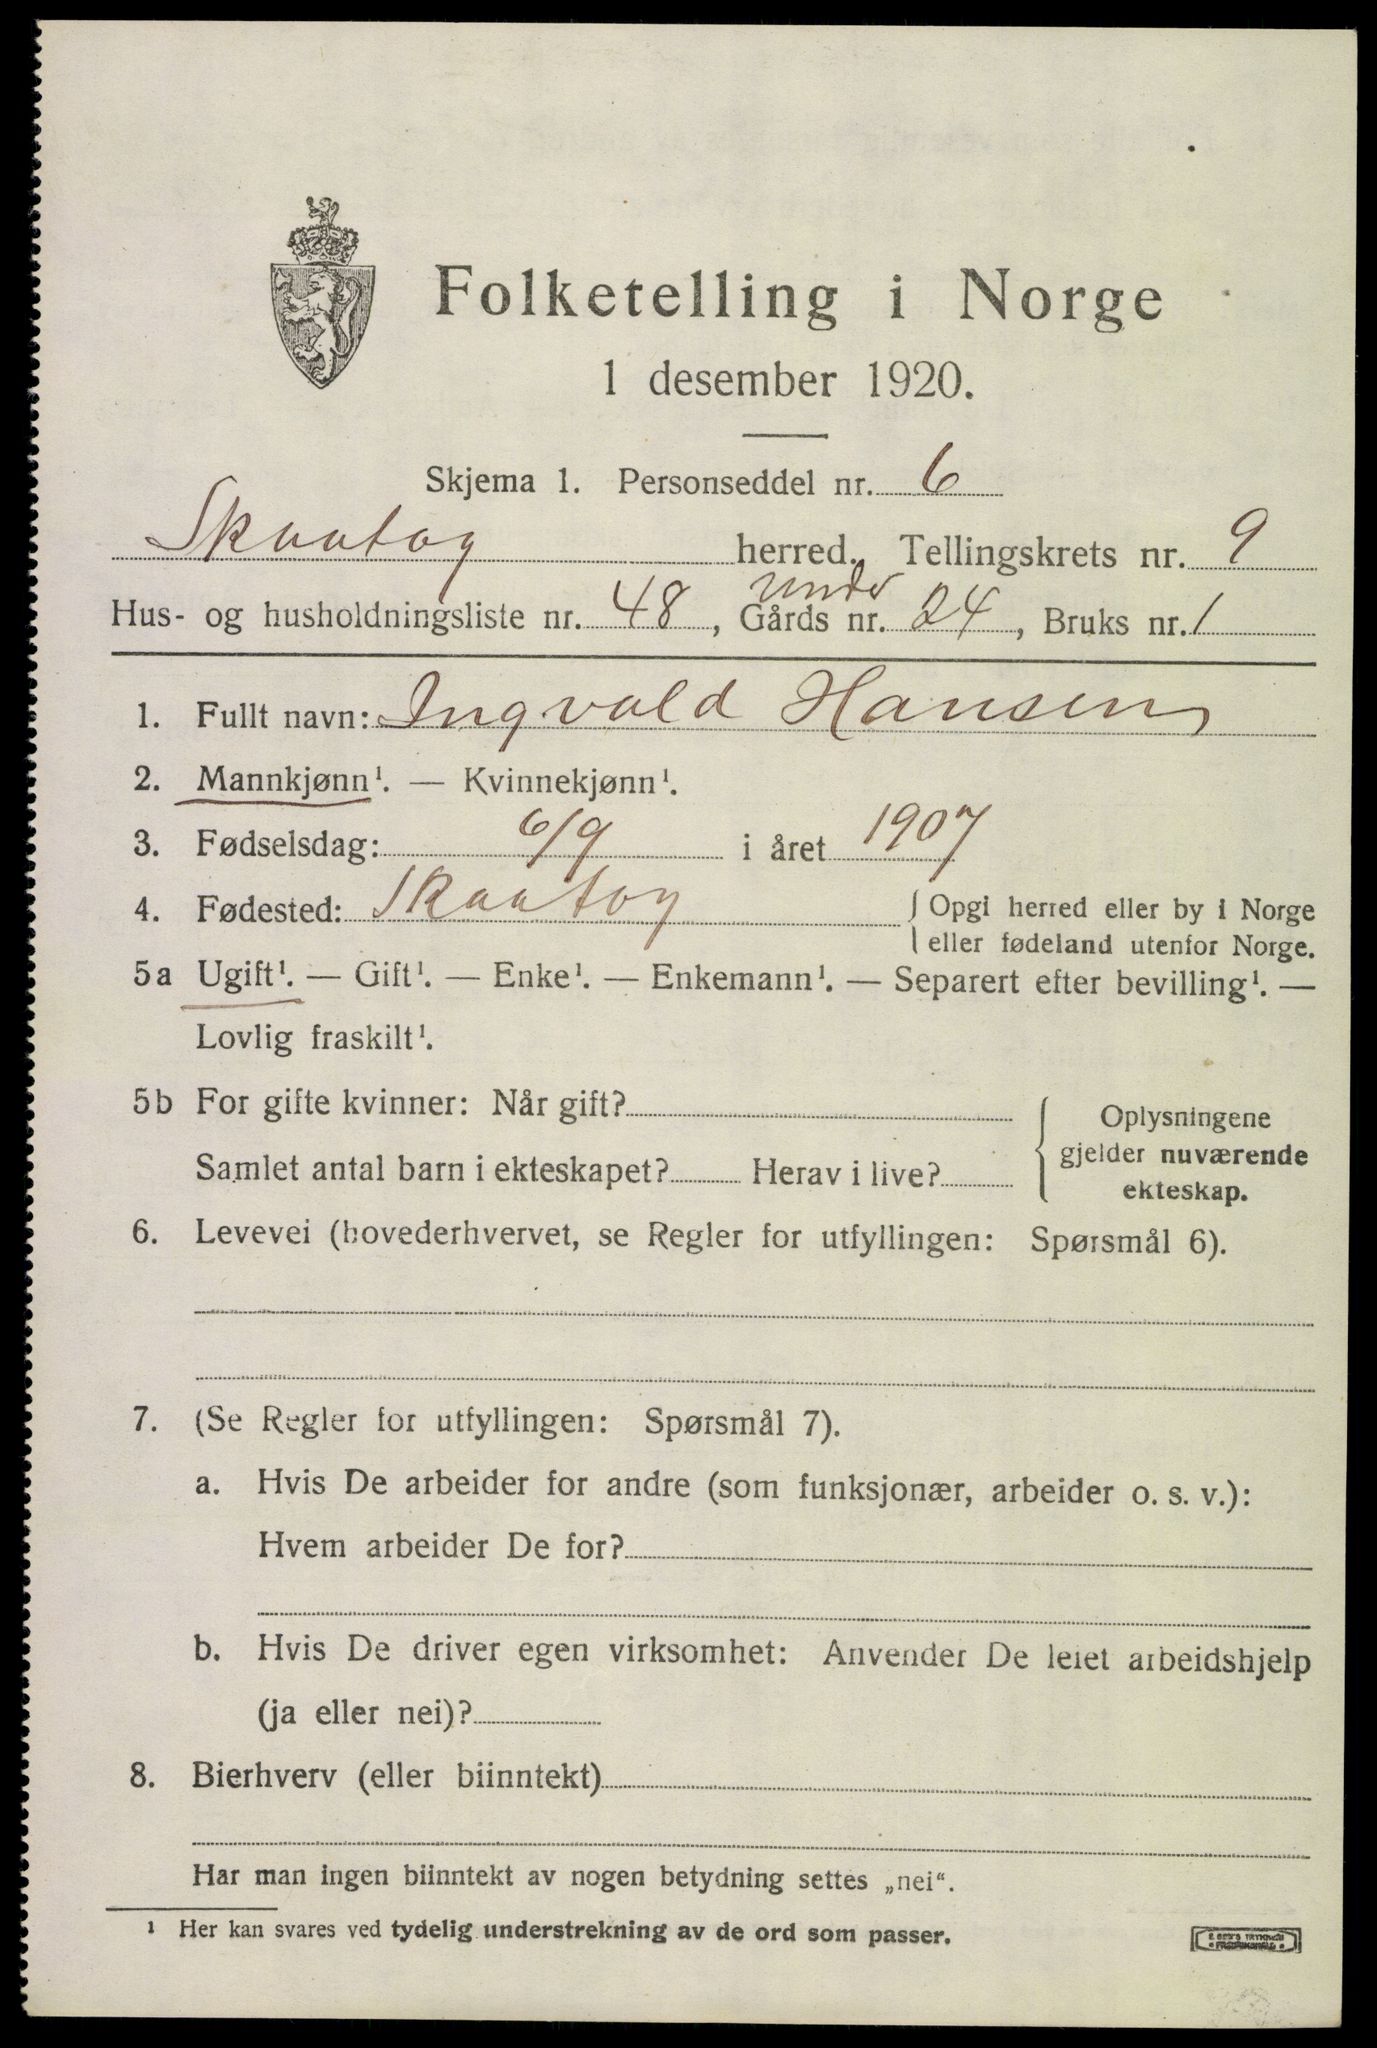 Folketelling i Norge
1 desember 1920.
Skjema 1. Personseddel nr. 6
Skaatøy herred. Tellingskrets nr. 9
under
Hus- og husholdningsliste nr. 48, Gårds nr. 24, Bruks nr. 1
1. Fullt navn: Ingvald Hansen
2. Mannkjønn¹. — Kvinnekjønn¹.
3. Fødselsdag: 6/9 i året 1907
4. Fødested: Skaatøy { Opgi herred eller by i Norge
eller fødeland utenfor Norge.
5a Ugift¹. — Gift¹. — Enke¹. — Enkemann¹. — Separert efter bevilling¹. —
Lovlig fraskilt¹.
5b For gifte kvinner: Når gift? { Oplysningene
gjelder nuværende
Samlet antal barn i ekteskapet? Herav i live?
ekteskap.
6. Levevei (hovederhvervet, se Regler for utfyllingen: Spørsmål 6).
7. (Se Regler for utfyllingen: Spørsmål 7).
a. Hvis De arbeider for andre (som funksjonær, arbeider o. s. v.):
Hvem arbeider De for?
b. Hvis De driver egen virksomhet: Anvender De leiet arbeidshjelp
(ja eller nei)?
8. Bierhverv (eller biinntekt)
Har man ingen biinntekt av nogen betydning settes „nei“.
¹ Her kan svares ved tydelig understrekning av de ord som passer.